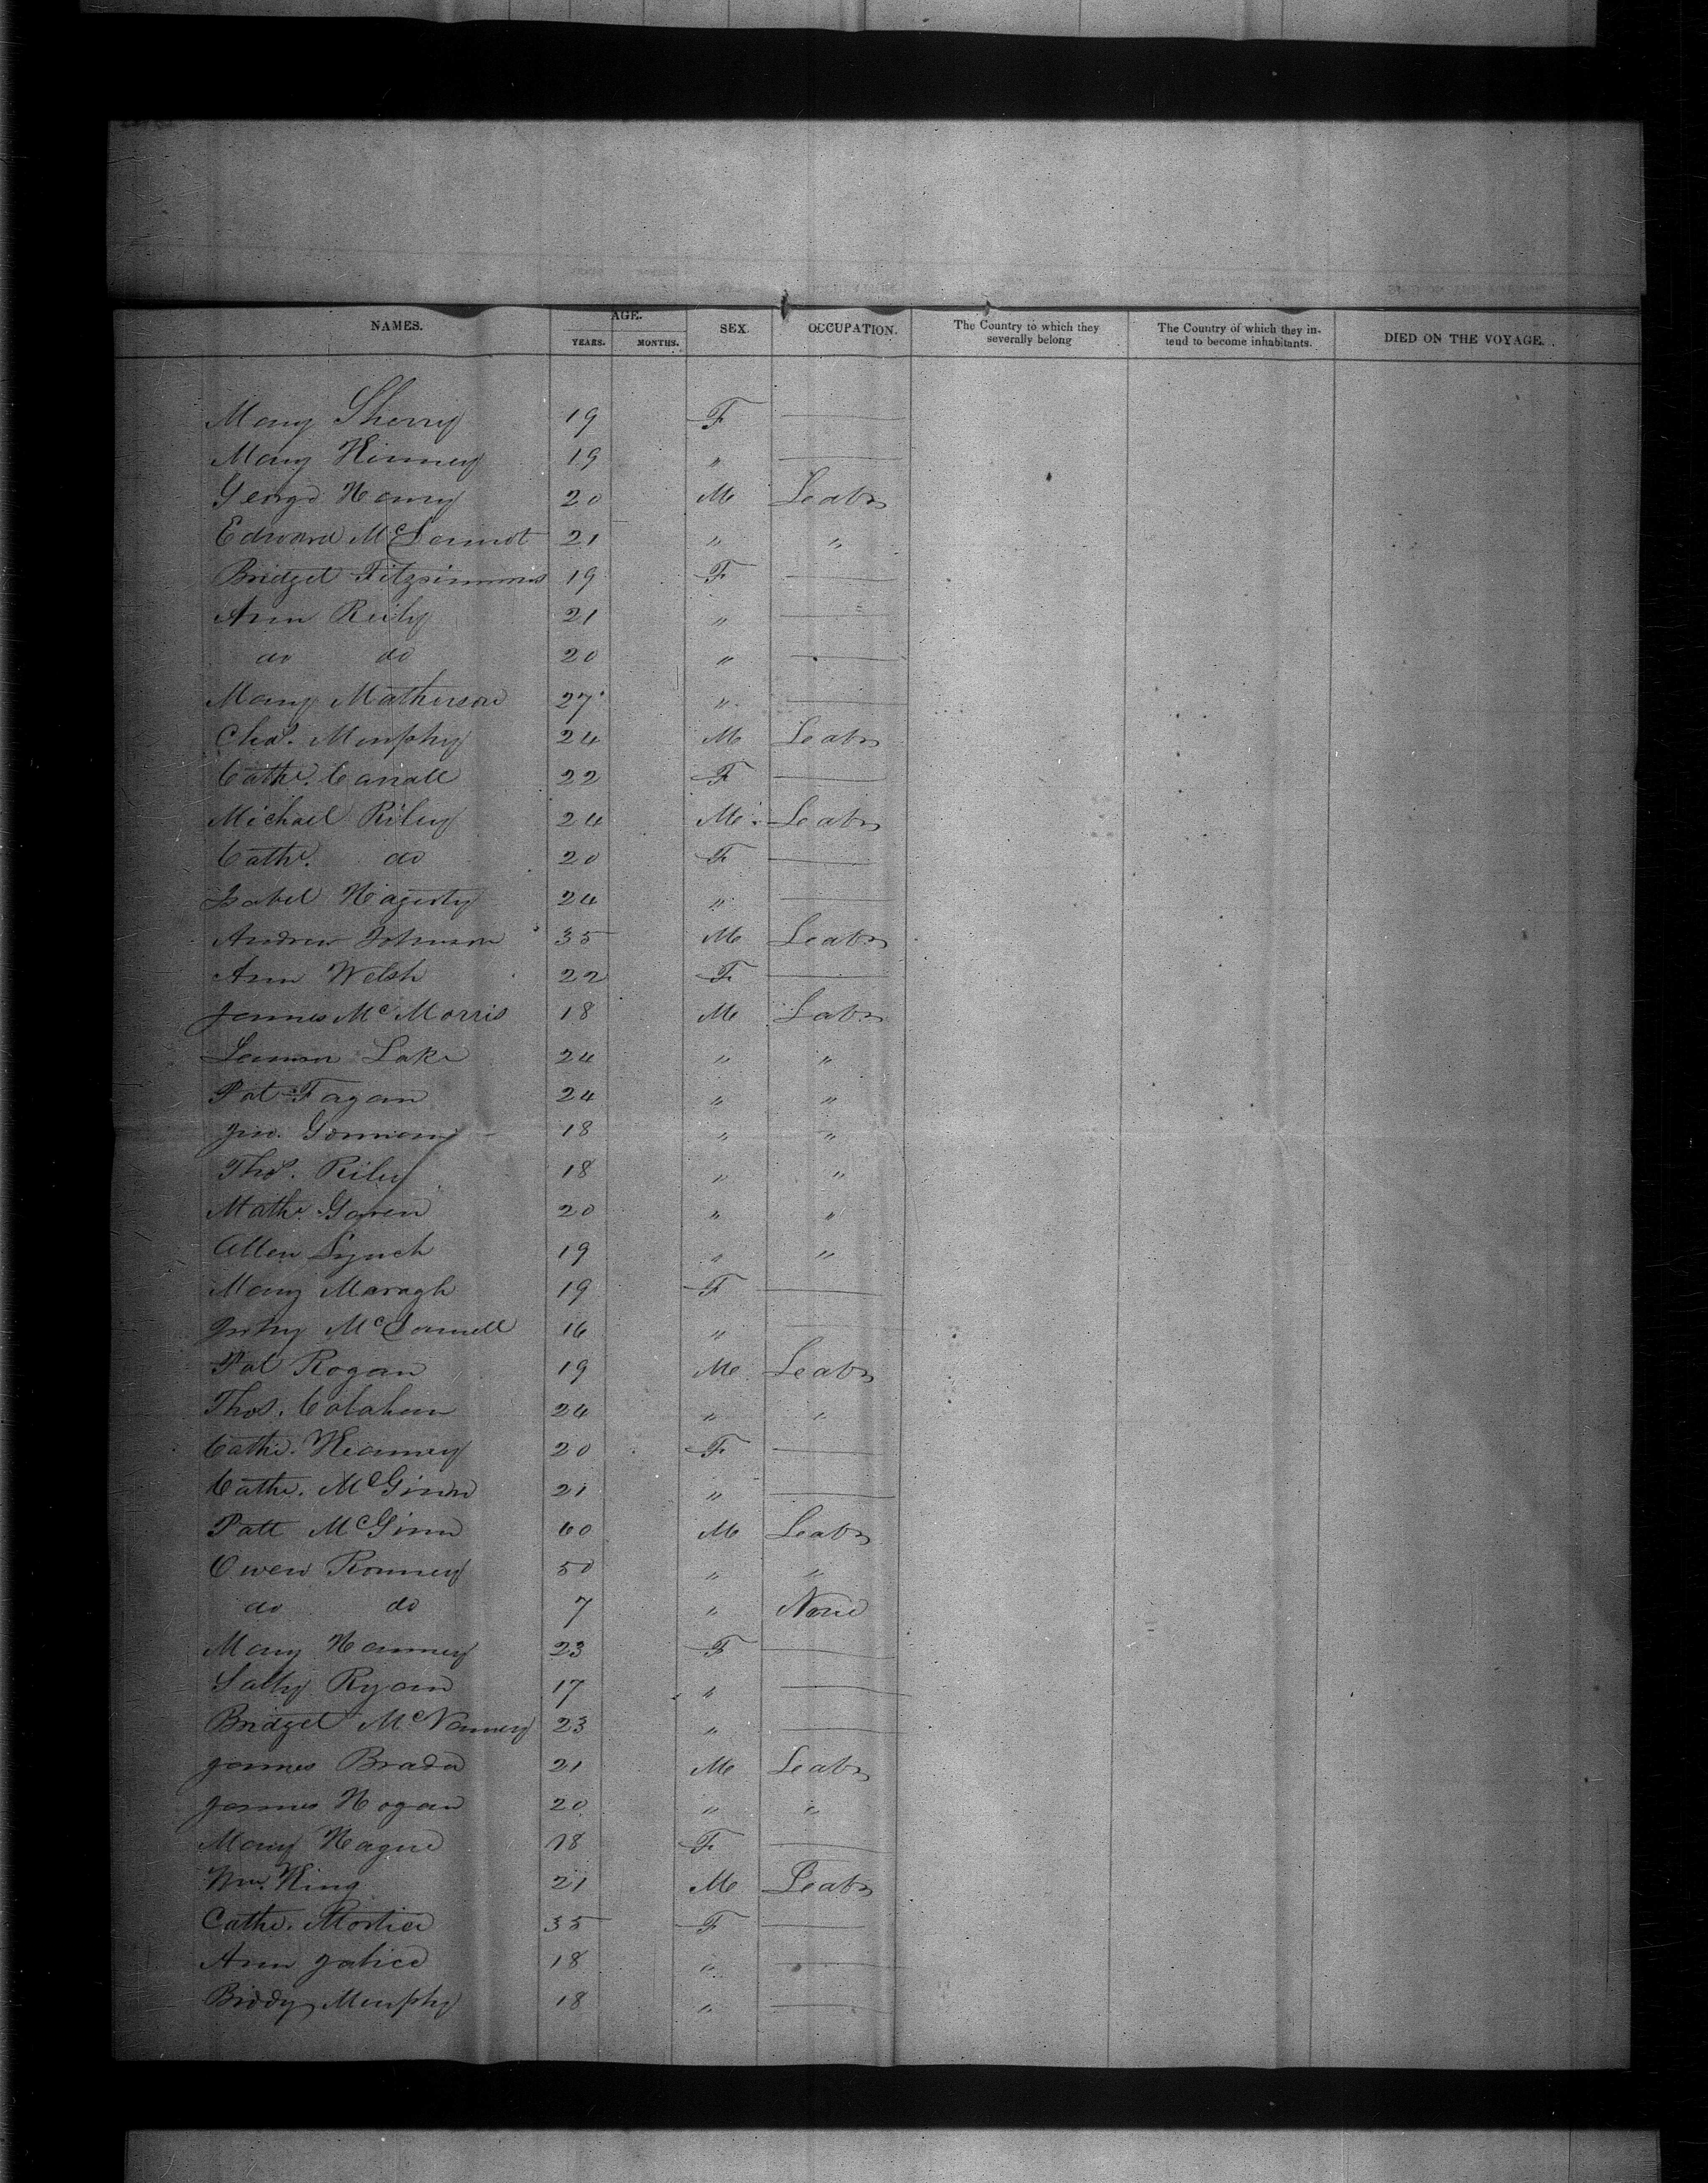 NAMES. AGE. SEX. OCCUPATION. The Country to which they severally belong The Country of which they intend to become inhabitants. DIED ON THE VOYAGE.
YEARS. MONTHS.
Mary Sherry 19 F
Mary Kinney 19 "
George Henry 20 M Leabr
Edward McDermot 21 " "
Bridget Fitzsimmons 19 F
Ann Reily 21 "
do do 20 "
Mary Matherson 27 "
Chas. Murphy 24 M Leabr
Cathe. Carrall 22 F
Michael Riley 24 M Leabr
Cathe. do 20 F
Isabel Hagerty 24 "
Andrew Johnson 35 M Leabr
Ann Welsh 22 F
James McMorris 18 M Labr
Lake 24 " "
Pat Fagan 24 " "
Jno. Gormany 18 " "
Thos. Riley 18 " "
Mathe Gaven 20 " "
Allen Lynch 19 " "
Mary Maragh 19 F
McDannell 16 "
Pat Rogan 19 M Leabr
Thos. Calahan 24 " "
Cathe. Kearney 20 F
Cathe. McGinn 21 "
Patt McGinn 60 M Leabr
Owen Ronney 50 " "
do do 7 " None
Mary Hanney 23 F
Sally Ryan 17 "
Bridget McVanney 23 "
James Brada 21 M Leabr
James Hogan 20 " "
Mary Hague 18 F
Wm. King 21 M Leabr
Cathe. Mortice 35 F
Ann Galice 18 "
Biddy Murphy 18 "